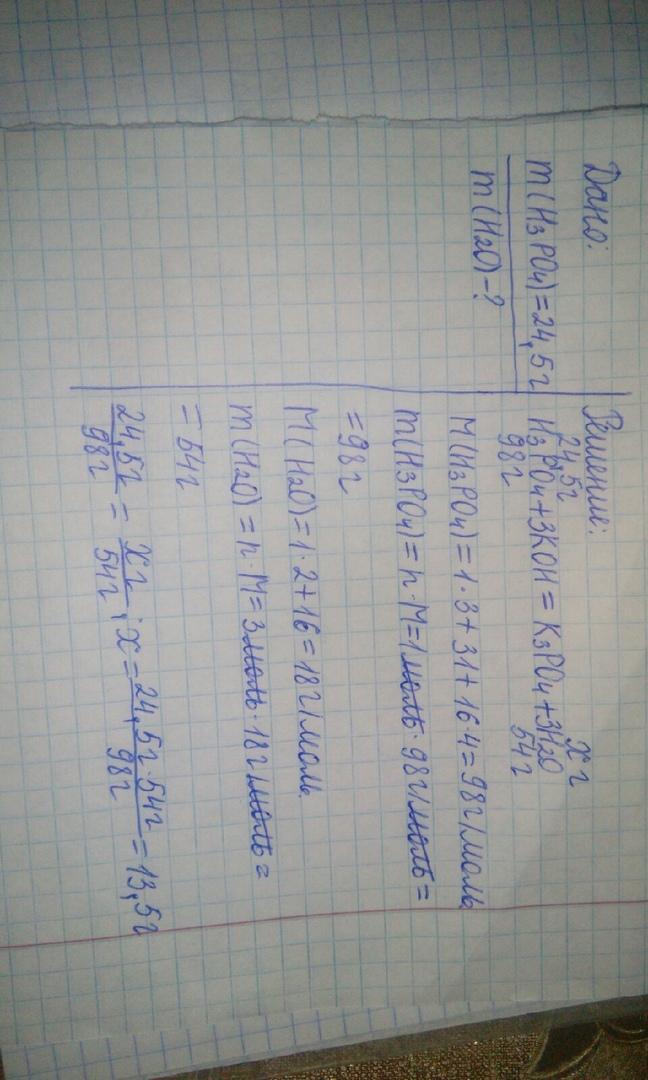 Дано:
m(H₃PO₄)=24,5г
m(H₂O)-?
Решение:
24,5г xг
H₃PO₄+3KOH=K₃PO₄+3H₂O
98г 54г
M(H₃PO₄)=1·3+31+16·4=98г/моль
m(H₃PO₄)=n·M=1моль·98г/моль=
=98г
M(H₂O)=1·2+16=18г/моль
m(H₂O)=n·M=3моль·18г/моль=
=54г
24,5г/98г = xг/54г; x= 24,5г·54г/98г =13,5г